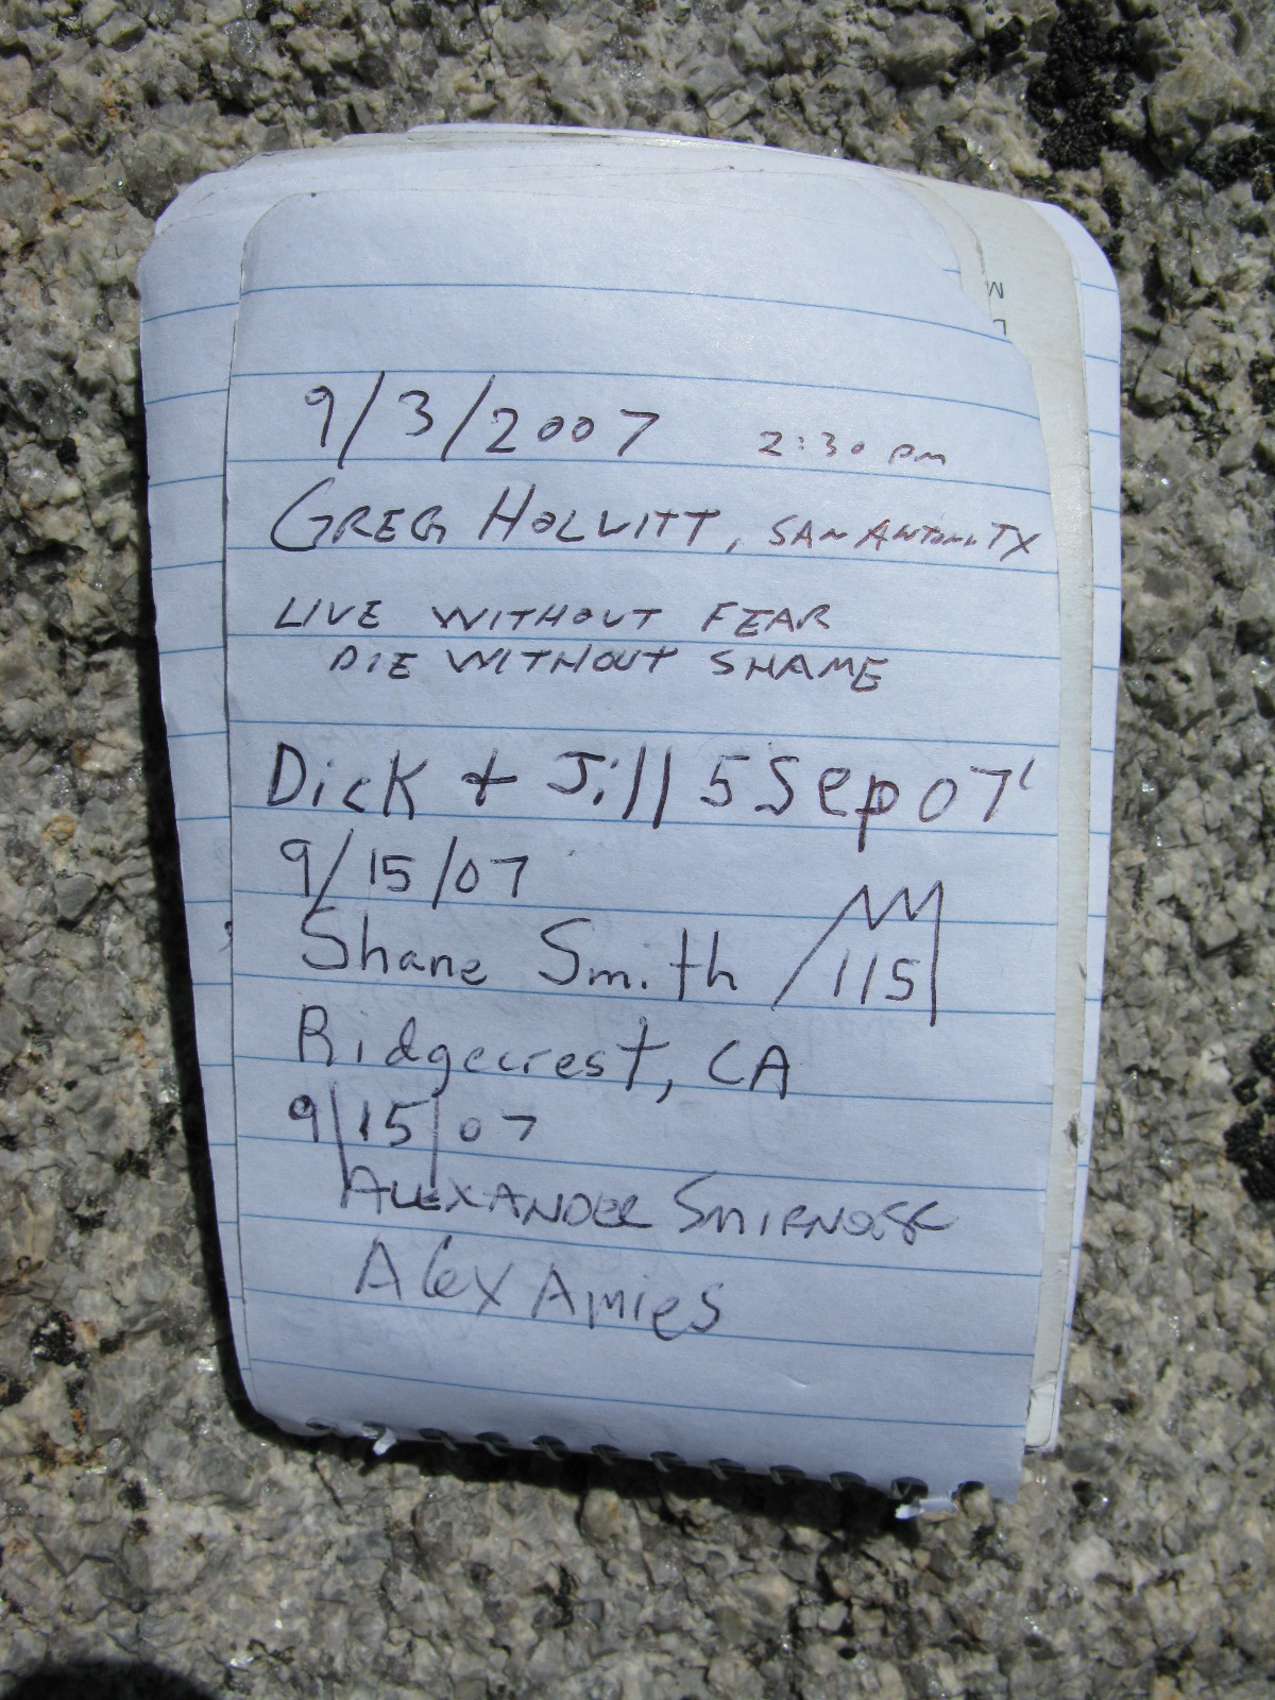 9/3/2007 2:30 pm
GREG HOLVITT, SAN ANTONIO TX
LIVE WITHOUT FEAR
DIE WITHOUT SHAME
Dick + Jill 5 Sep 07'
9/15/07
Shane Smith 115
Ridgecrest, CA
9/15/07
ALEXANDER
Alex Amies